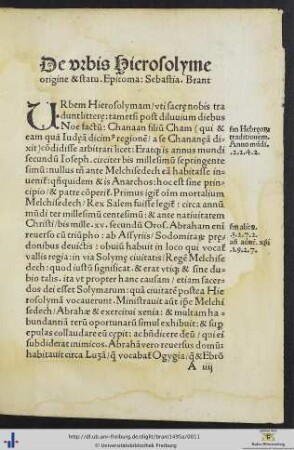 De vrbis Hierosolyme
origine & statu. Epitoma: Sebastia. Brant
URbem Hierosolymam/ vti sacrę nobis tra
dunt litterę: tametsi post diluuium diebus
Noe factū: Chanaan filiū Cham (qui &
eam quā Iudęā dicim⁹ regionē/ a se Chananęā di
xit) cōdidisse arbitrari licet: Eratq; is annus mundi
secundū Ioseph. circiter bis millesimū septingente
simū: nullus tn̄ ante Melchisedech eā habitasse in
uenit̄: q̄si quidem & is Anarchos: hoc est sine prin
cipio/ & patre cōperit̄. Primus igit̄ oīm mortalium
Melchisedech/ Rex Salem fuisse legit̄: circa annū
mūdi ter millesimū centesimū: & ante natiuitatem
Christi/ bis mille. xv. secundū Oros̄. Abraham eni
reuerso cū triūpho: ab Assyriis/ Sodomięq; prę
donibus deuictis: obuiū habuit in loco qui vocat̄
vallis regia: in via Solymę ciuitatis/ Regē Melchise
dech: quod iustū significat. & erat vtiq; & sine du
bio talis. ita vt propter hanc causam/ etiam sacer
dos dei esset Solymarum: quā ciuitatē postea Hie
rosolymā vocauerunt. Ministrauit aūt ip̄e Melchi
sedech/ Abrahę & exercitui xenia: & multam ha
bundantiā rerū oportunarū simul exhibuit: & sup
epulas collaudare eū cępit: ac bn̄dicere deū/ qui ei
subdiderat inimicos. Abrahā vero reuersus domū:
habitauit circa Luzā/ q̄ vocabat̄ Ogygia/ q̄ & Ebrō
A iiij
sm̄ Hebręorū
traditionem.
Anno mūdi.
.2.2.4.2.
sm̄ alios.
.3.1.7.2.
añ aduē. xp̄i
.1.9.2.7.
http://dl.ub.uni-freiburg.de/diglit/brant1495a/0011
© Universitätsbibliothek Freiburg